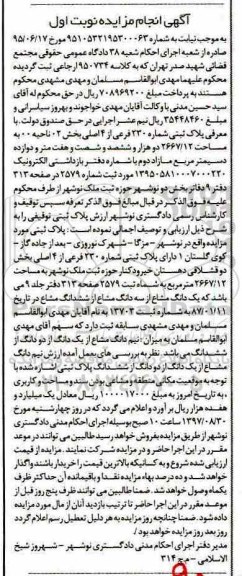 آگهی انجام مزایده نوبت اول
به موجب نیابت به شماره ۹۵۱۰۵۳۲۱۹۵۳۰۰۰۶۳ مورخ ۹۵/۰۶/۱۷
صادره از شعبه اجرای احکام شعبه ۳۸ دادگاه عمومی حقوقی مجتمع
قضائی شهید صدر تهران که به کلاسه ۹۵۰۷۳۴ ارجاعی ثبت گردیده
محکوم علیهما مهدی ابوالقاسم مسلمان و مهدی مشهدی محکوم
هستند به پرداخت مبلغ ۷۰۸۹۶۹۲۰۰ ریال در حق محکوم له آقای
سید حسین مدنی با وکالت آقایان مهدی خواجوند و بهروز سیلرانی و
مبلغ ۳۵۴۴۸۴۶۰ ریال نیم عشر اجرایی در حق صندوق دولت. با
معرفی پلاک ثبتی شماره ۲۳۰ فرعی از ۴ اصلی بخش ۲ ناحیه ۰۰ به
مساحت ۲۶۶۷/۱۲ دو هزار و ششصد و شصت و هفت متر و دوازده
دسیمتر مربع مازاد دوم با شماره دفتر بازداشتی الکترونیک
۱۳۹۵۰۵۸۱۰۰۰۷۰۰۰۲۲۰ مورد ثبت شماره ۲۵۷۹ در صفحه ۳۱۳
دفتر ۹ دفاتر بخش دو نوشهر حوزه ثبت ملک نوشهر از طرف محکوم
علیه فوق الذکر در قبال مبالغ فوق الذکر تعرفه سپس توقیف و
کارشناس رسمی دادگستری نوشهر ارزش پلاک ثبتی توقیفی را به
شرح ذیل ارزیابی و توصیف اجمالی نموده است: پلاک ثبتی مورد
مزایده واقع در نوشهر - مزگا - شهرک نوروزی - بعد از جاده گاز -
کوی گلستان ۱ دارای پلاک ثبتی شماره ۲۳۰ فرعی از ۴ اصلی بخش
دو قشلاقی دهستان خیرودکنار حوزه ثبت ملک نوشهر به مساحت
۲۶۶۷/۱۲ مترمربع به شماره ثبت ۲۵۷۹ صفحه ۳۱۳ دفتر جلد ۹ می
باشد که یک دانگ مشاع از سه دانگ مشاع از ششدانگ مشاع در تاریخ
۸۷/۰۱/۱۱ به شماره ثبت ۱۳۷۰۳ به نام آقایان مهدی ابوالقاسم
مسلمان و مهدی مشهدی سابقه ثبت دارد که سهم آقای مهدی
ابوالقاسم مسلمان به میزان: نیم دانگ مشاع از یک دانگ از دو دانگ از
ششدانگ می باشد. نظر به بررسی های بعمل آمده ارزش نیم دانگ
مشاع از یک دانگ از دو دانگ از ششدانگ پلاک ثبتی اشاره شده با
توجه به موقعیت مکانی منطقه و مشاعی بودن بدر و مساحت و کاربری
، به تاریخ امروز به مبلغ ۱۰۰۰۱۷۰۰۰ ریال معادل یک میلیارد و
هفده هزار ریال بر آورد و اعلام می گردد که در روز چهارشنبه مورخ
۱۳۹۷/۰۸/۳۰ ساعت ۱۰ صبح بوسیله اجرای احکام مدنی دادگستری
نوشهر از طریق مزایده بفروش خواهد رسید طالبین می توانند در موعد
مقرر در این اجرا حاضر و در مزایده شرکت نمایند. مزایده از قیمت
ارزیابی شده شروع و به کسانیکه بالاترین قیمت را خریدار باشند واگذار
خواهد شد و ده درصد بهاء مزایده نقدا و باقیمانده آن حداکثر ظرف
یکماه وصول خواهد شد. ضمنا طالبین می توانند ظرف پنج روز قبل از
موعد مقرر در این اجرا حاضر تا ترتیب بازدید آنان از مال مورد مزایده
داده شود. ضمنا چنانچه روز مزایده به هر دلیل تعطیل رسم اعلام گردد
روز بعد روز مزایده خواهد بود./
مدیر دفتر اجرای احکام مدنی دادگستری نوشهر - شهروز شیخ
الاسلامی - م.ج ۳۱۴